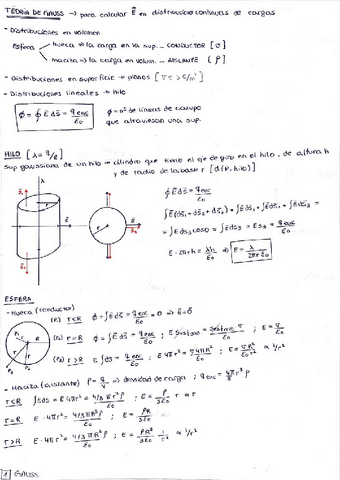 TEOREMA DE GAUSS → para calcular E⃗ en distribuciones continuas de cargas
- Distribuciones en volumen
Esfera
hueca ⇒ la carga en la sup. → CONDUCTOR [σ]
maciza ⇒ la carga en volum. → AISLANTE [ρ]
- Distribuciones en superficie → planos
- Distribuciones lineales → hilo
ϕ = ∮ E⃗ ds⃗ = q enc / ε₀
ϕ = nº de líneas de campo
que atraviesan una sup.
HILO [λ = q/ℓ]
Sup gaussiana de un hilo → cilindro que tiene el eje de giro en el hilo, de altura h
y de radio de la base r [d(P, hilo)]
∮ E⃗ ds⃗ = q enc / ε₀
∫ E⃗ (ds⃗₁ + ds⃗₂ + ds⃗₃) = ∫ E⃗ ds⃗₁ + ∫ E⃗ ds⃗₂ + ∫ E⃗ ds⃗₃ =
= ∫ E ds₃ cos 0 = ∫ E ds₃ = E S₃ = q enc / ε₀
E · 2πrh = λh / ε₀ ⇒ E = λ / 2πrε₀
ESFERA
- Hueca (conductor)
(P₁) r<R ϕ = ∮ E⃗ ds⃗ = q enc / ε₀ = 0 ⇒ E⃗ = 0⃗
(P₂) r=R ϕ = ∮ E⃗ ds⃗ = q enc / ε₀ ; E = σ / ε₀
(P₃) r>R ∮ E ds = q enc / ε₀ ; E 4πr² = σ 4πR² / ε₀ ; E = σR² / ε₀r² ∝ 1/r²
- Maciza (aislante) ρ = q/V ⇒ densidad de carga ;
r<R ∮ E ds = E 4πr² = 4/3 πr³ρ / ε₀ ; E = ρ / 3ε₀ r ∝ r
r=R E · 4πr² = 4/3 πR³ρ / ε₀ ; E = ρR / 3ε₀
r>R E · 4πr² = 4/3 πR³ρ / ε₀ ; E = ρR³ / 3ε₀ 1/r² ∝ 1/r²
1 GAUSS